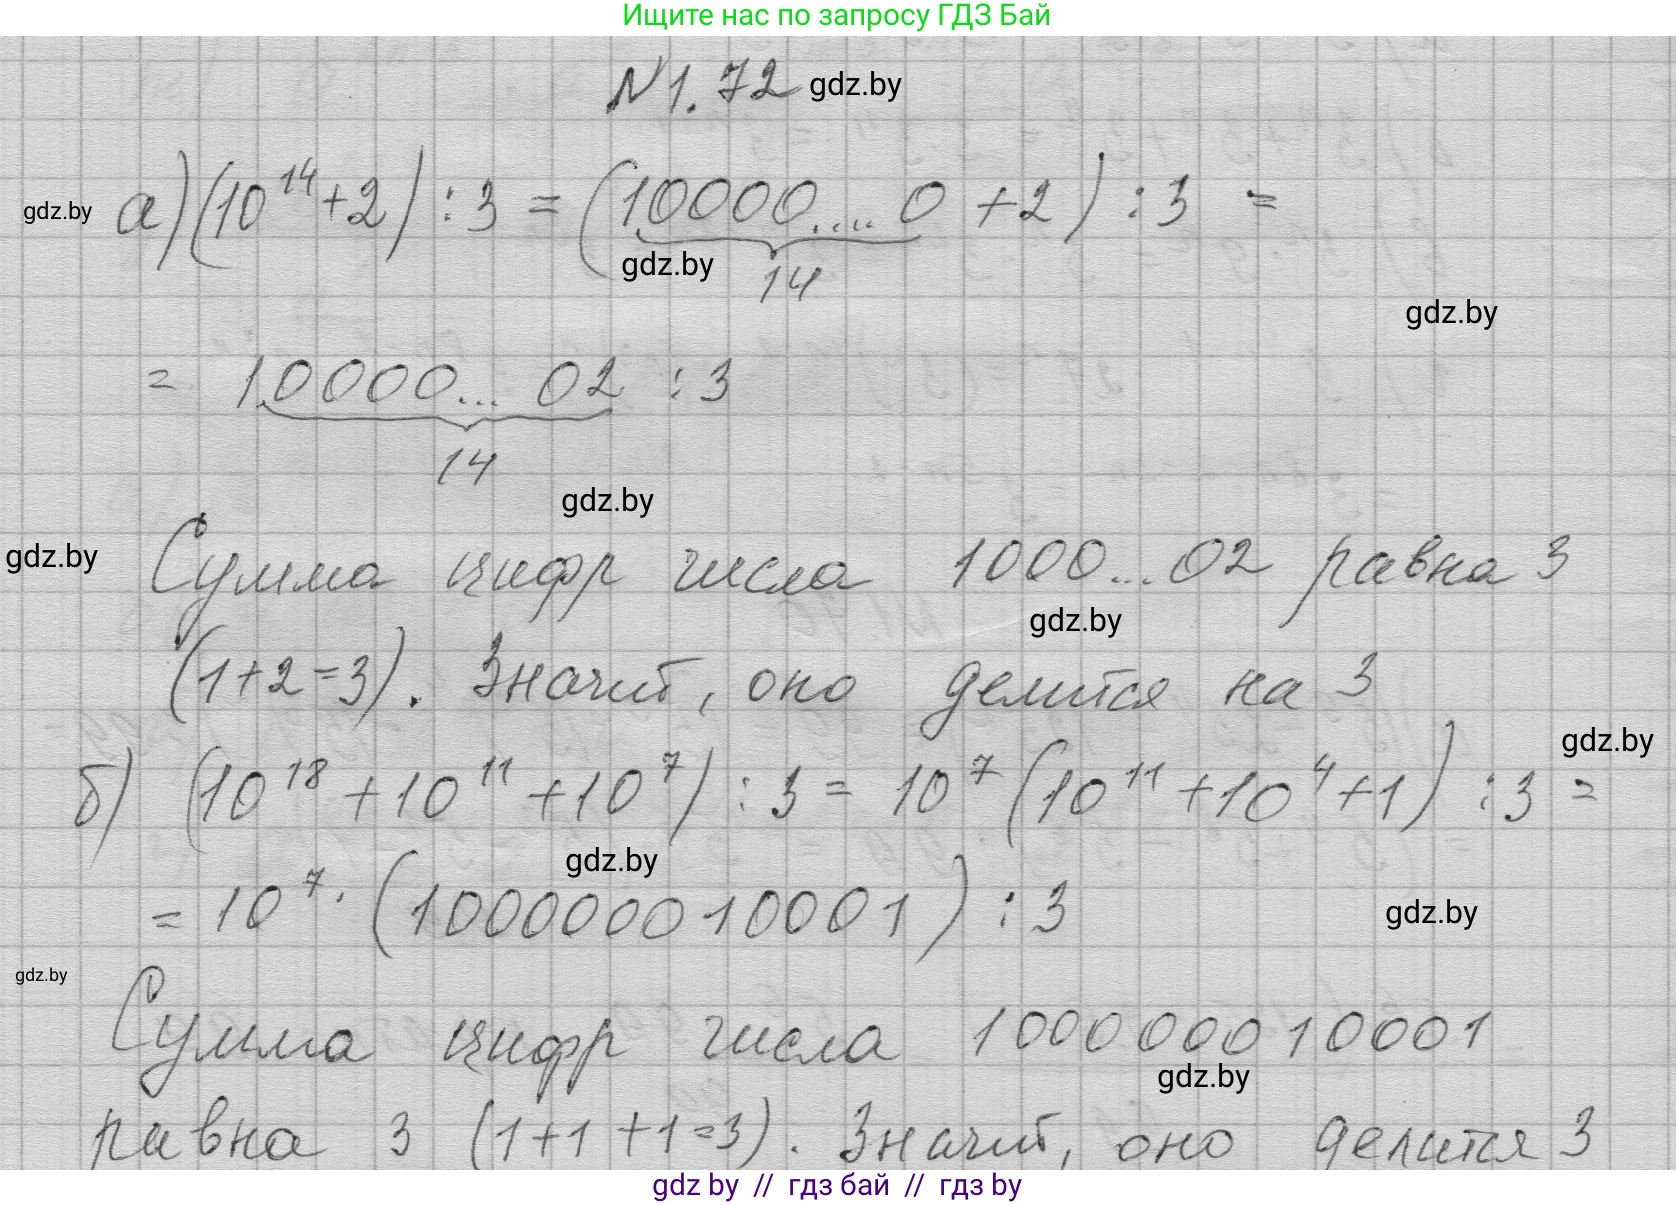 Ищите нас по запросу ГДЗ Бай
№1.72 gdz.by
gdz.by а) (10¹⁴+2) : 3 = (10000....0 +2) : 3 =
gdz.by 14
gdz.by
= 10000... 02 : 3
14
gdz.by
gdz.by Сумма цифр числа 1000...02 равна 3
gdz.by
(1+2=3). Значит, оно делится на 3
gdz.by
б) (10¹⁸ + 10¹¹ + 10⁷) : 3 = 10⁷ (10¹¹ + 10⁴ + 1) : 3 =
gdz.by
= 10⁷ · (100000010001) : 3
gdz.by
gdz.by
Сумма цифр числа 100000010001
gdz.by
равна 3 (1+1+1=3). Значит, оно делится 3
gdz by // гдз бай // гдз by